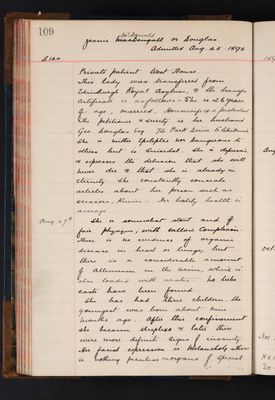 109
McDonald
Jeanie MacDougall or Douglas
Admitted Aug. 23 1898
£120.
Private patient West House.
This lady was transferred from
Edinburgh Royal Asylum, & the transfer
Certificate is as follows - She is 26 years
of age, Married, Housewife & a protestant
The petitioner & surety is her husband
Geo. Douglas Esq
She is neither Epileptic nor Dangerous to
others but is Suicidal. She is depressed
& expresses the delusion that she will
never die & that she is already in
Eternity. She constantly conceals
articles about her person such as
scissors, Knives. Her bodily health is
average
Aug. 27th She is somewhat stout and of
fair physique, with sallow Complexion.
There is no evidence of organic
disease in heart or lungs, but
there is a considerable amount
of Albumen in the urine, which is
also loaded with urates. No tube
casts have been found.
She has had three children, the
youngest was born about nine
months ago. After this confinement
she became sleepless & later there
were more definite signs of insanity.
Her facial expression is Melancholy & there
is nothing peculiar